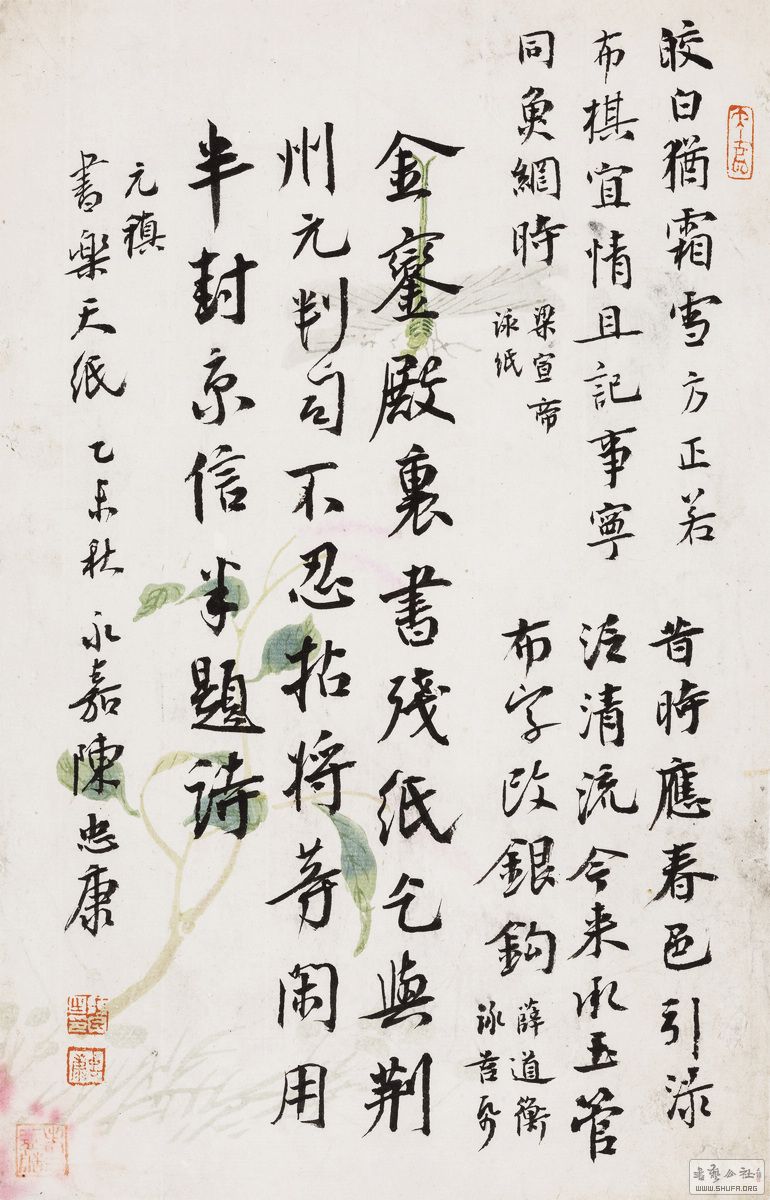 皎白猶霜雪方正若
布棋宜情且記事寧
同魚網時
梁宣帝
詠紙
昔時應春色引淥
泛清流今来承玉管
布字改銀鈎
薛道衡
詠苔紙
金鑾殿裏書殘紙乞與荊
州元判司不忍拈將等閑用
半封京信半題詩
元稹
書樂天紙 乙未秋 永嘉陳忠康
書藝公社
WWW.SHUFA.ORG